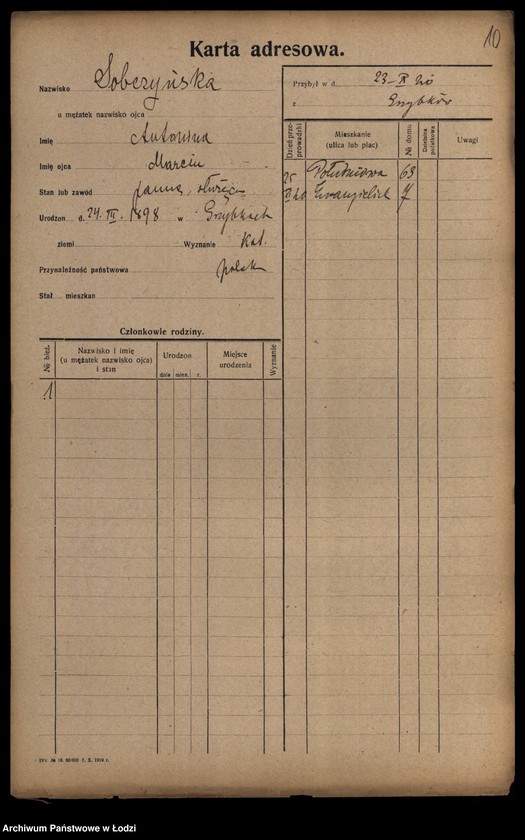 10
Karta adresowa.
Nazwisko Sobczyńska
u mężatek nazwisko ojca
Imię Antonina
Imię ojca Marcin
Stan lub zawód panna, służąca
Urodzon d. 24. III. 1898 w Grzybkach
ziemi Wyznanie Kat.
Przynależność państwowa polsk
Stał mieszkan
Przybył w d. 23-IX 20
z Grzybków
Dzień przeprowadzki
Mieszkanie
(ulica lub plac)
№ domu
Dzielnica podatkowa
Uwagi
25 Południowa 63
20 Ewangielick 7
Członkowie rodziny.
№ bież.
Nazwisko i imię
(u mężatek nazwisko ojca)
i stan
Urodzon
dnia mies. r.
Miejsce
urodzenia
Wyznanie
1
№ 18. 60000 2. X. 1919 r.
Archiwum Państwowe w Łodzi